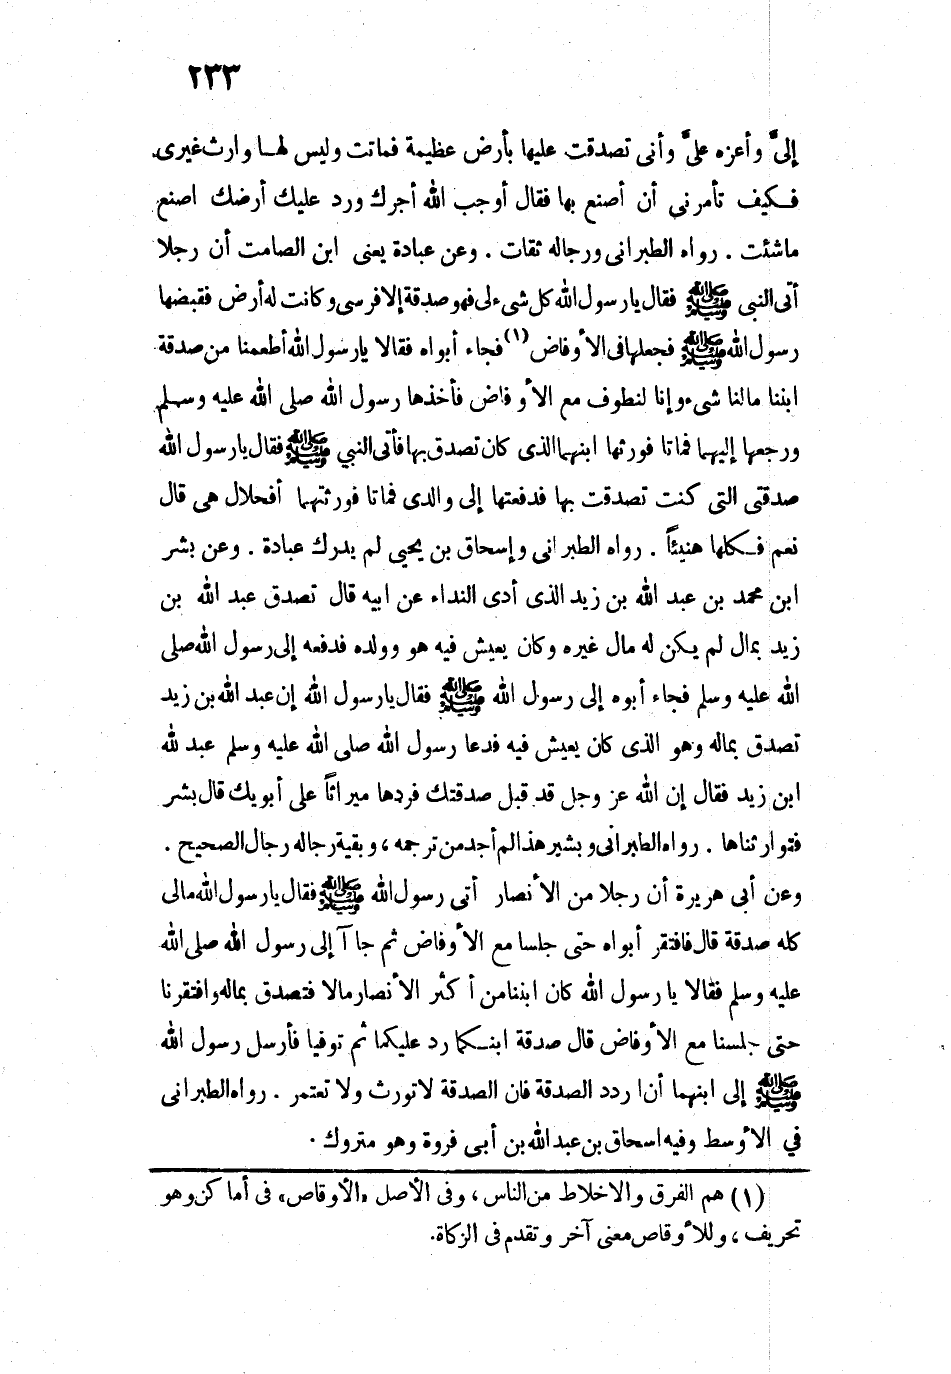 ٢٣٣
إلىَّ وأعزه علىَّ وأنى تصدقت عليها بأرض عظيمة فماتت وليس لها وارث غيرى
فكيف تأمرنى أن أصنع بها فقال أوجب الله أجرك ورد عليك أرضك اصنع
ماشئت . رواه الطبرانى ورجاله ثقات . وعن عبادة يعنى ابن الصامت أن رجلا
أتى النبى ﷺ فقال يارسول الله كل شىء لى فهو صدقة إلا فرسى وكانت له أرض فقبضها
رسول الله ﷺ فجعلها فى الأوفاض (١) فجاء أبواه فقالا يارسول الله أطعمنا من صدقة
ابننا مالنا شىء وإنا لنطوف مع الأوفاض فأخذها رسول الله صلى الله عليه وسلم
ورجعها إليهما فماتا فورثها ابنهما الذى كان تصدق بها فأتى النبي ﷺ فقال يارسول الله
صدقتى التى كنت تصدقت بها فدفعتها إلى والدى فماتا فورثتهما أفحلال هى قال
نعم فكلها هنيئاً . رواه الطبرانى وإسحاق بن يحيى لم يدرك عبادة . وعن بشر
ابن محمد بن عبد الله بن زيد الذى أدى النداء عن ابيه قال تصدق عبد الله بن
زيد بمال لم يكن له مال غيره وكان يعيش فيه هو وولده فدفعه إلى رسول الله صلى
الله عليه وسلم فجاء أبوه إلى رسول الله ﷺ فقال يارسول الله إن عبد الله بن زيد
تصدق بماله وهو الذى كان يعيش فيه فدعا رسول الله صلى الله عليه وسلم عبد لله
ابن زيد فقال إن الله عز وجل قد قبل صدقتك فردها ميراثاً على أبويك قال بشر
فتوارثناها . رواه الطبرانى وبشير هذا لم أجد من ترجمه ، وبقية رجاله رجال الصحيح .
وعن أبى هريرة أن رجلا من الأنصار أتى رسول الله ﷺ فقال يارسول الله مالى
كله صدقة قال فافتقر أبواه حتى جلسا مع الأوفاض ثم جاآ إلى رسول الله صلى الله
عليه وسلم فقالا يا رسول الله كان ابننا من أكثر الأنصار مالا فتصدق بماله وافتقرنا
حتى جلسنا مع الأوفاض قال صدقة ابنكما رد عليكما ثم توفيا فأرسل رسول الله
ﷺ إلى ابنهما أن اردد الصدقة فان الصدقة لا تورث ولا تعتمر . رواه الطبرانى
في الأوسط وفيه اسحاق بن عبد الله بن أبى فروة وهو متروك .
(١) هم الفرق والاخلاط من الناس ، وفى الأصل «الأوقاص» فى أماكن وهو
تحريف ، وللأوقاص معنى آخر وتقدم فى الزكاة.